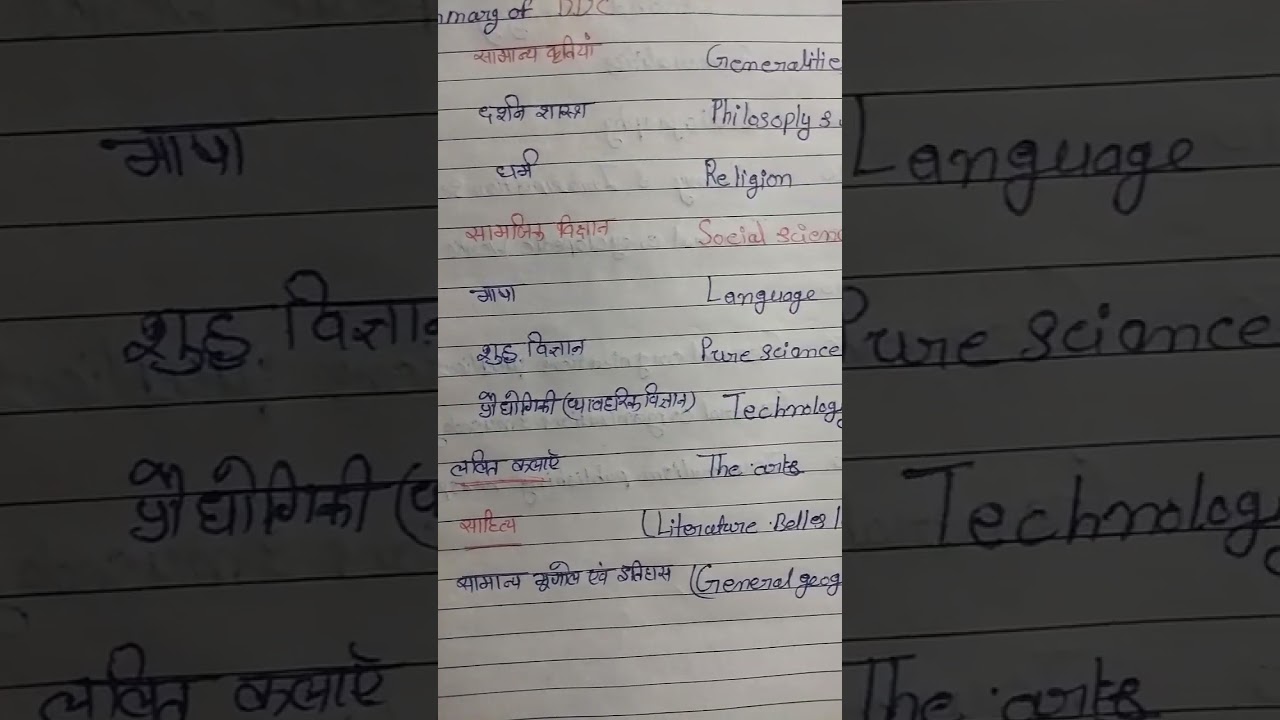 mmary of DDC
सामान्य कृतियां Generalitie
दर्शन शास्त्र Philosoply &
धर्म Religion
सामाजिक विज्ञान Social scienc
भाषा Language
शुद्ध विज्ञान Pure sciance
प्रौद्योगिकी (व्यावहारिक विज्ञान) Technolog
ललित कलाएँ The arts
साहित्य (Literature Belles l
सामान्य भूगोल एवं इतिहास (General geog
भाषा Language
शुद्ध विज्ञान Pure sciance
प्रौद्योगिकी ( Technolog
ललित कलाएँ The arts